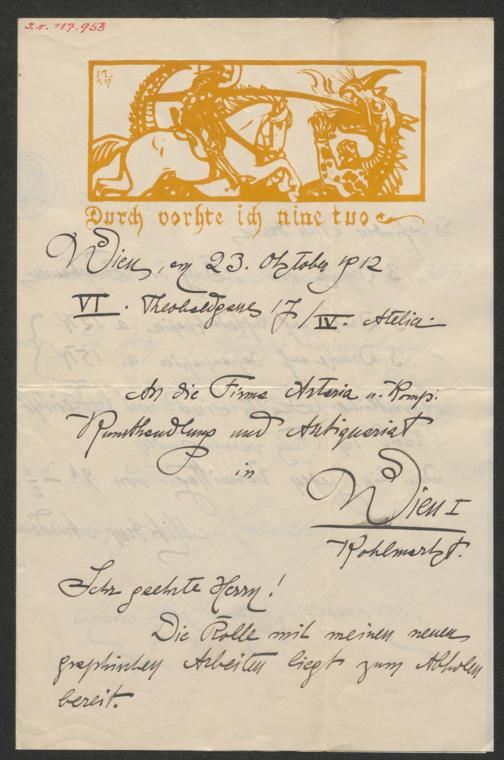 I.N. 117.953
Durch vorhte ich nine tuo
Wien, am 23. Oktober 1912
VI. Theobaldgasse 17/IV. Atelier
An die Firma Artaria u. Komp.
Kunsthandlung und Antiquariat
in
Wien I
Kohlmarkt.
Sehr geehrte Herrn!
Die Rolle mit meinen neuen
graphischen Arbeiten liegt zum Abholen
bereit.